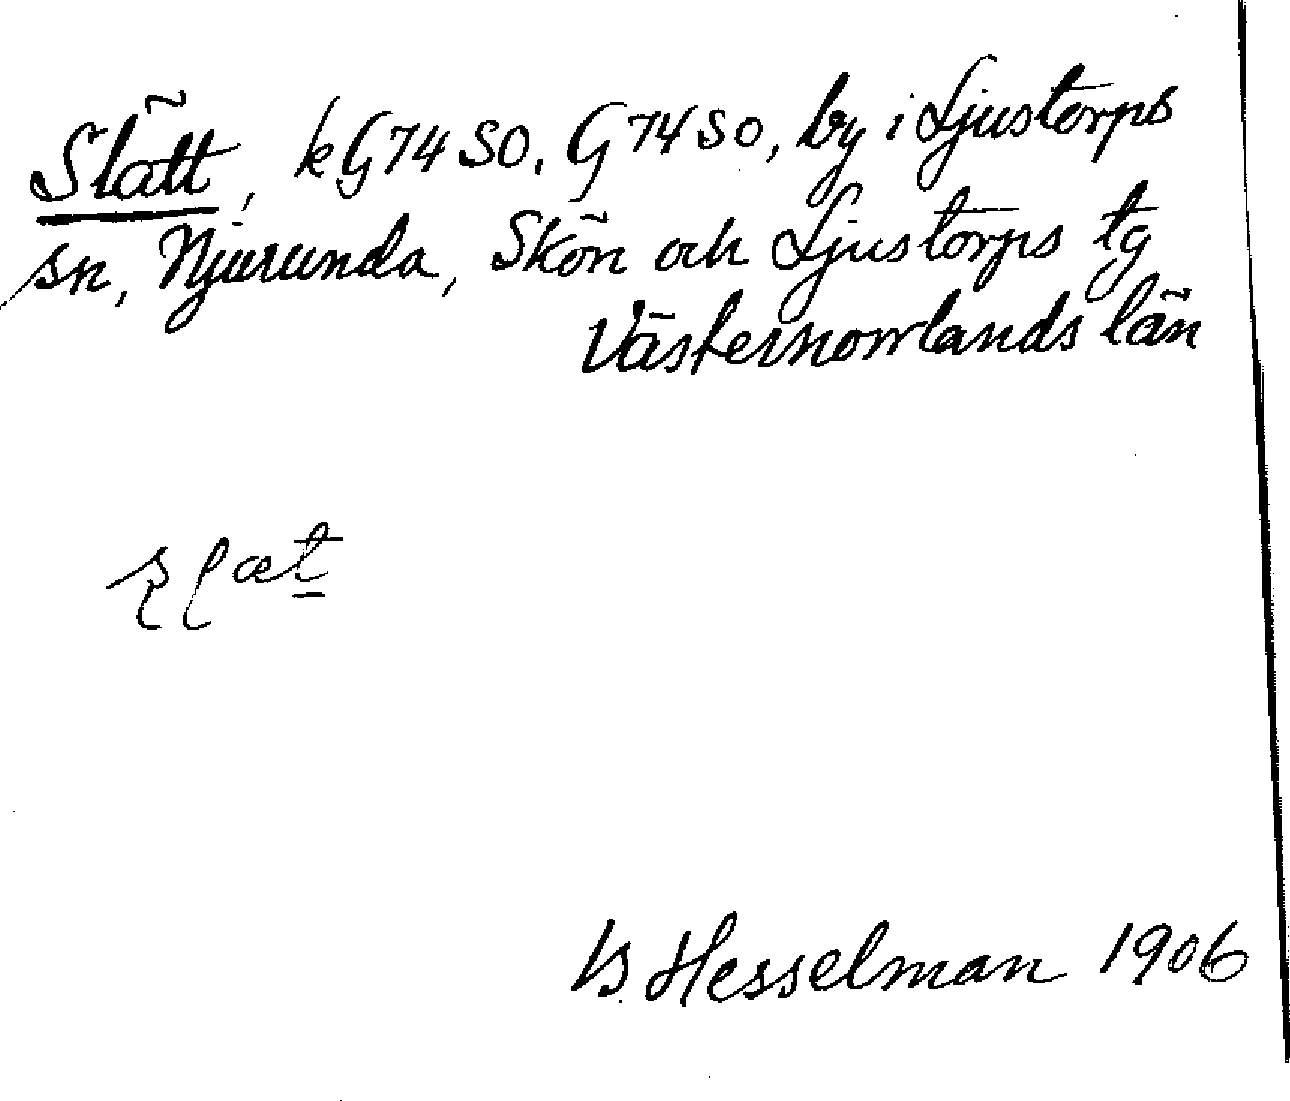 Slätt, kG74SO. G74SO, by i Ljustorps
sn, Njurunda, Skön och Ljustorps tg
Västernorrlands län
slæt
B. Hesselman 1906